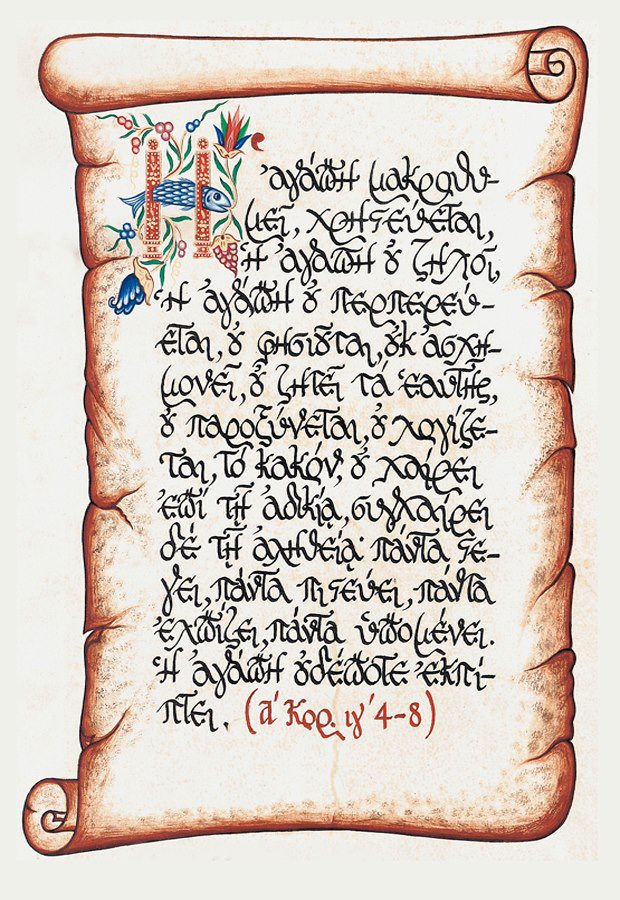 Ἡ ἀγάπη μακροθυ-
μεῖ, χρηστεύεται,
ἡ ἀγάπη οὐ ζηλοῖ,
ἡ ἀγάπη οὐ περπερεύ-
εται, οὐ φυσιοῦται, οὐκ ἀσχη-
μονεῖ, οὐ ζητεῖ τά ἑαυτῆς,
οὐ παροξύνεται, οὐ λογίζε-
ται, τό κακόν, οὐ χαίρει
ἐπί τῇ ἀδικίᾳ, συγχαίρει
δέ τῇ ἀληθείᾳ· πάντα στέ-
γει, πάντα πιστεύει, πάντα
ἐλπίζει, πάντα ὑπομένει.
Ἡ ἀγάπη οὐδέποτε ἐκπί-
πτει. (Α΄ Κορ. ιγ΄ 4-8)